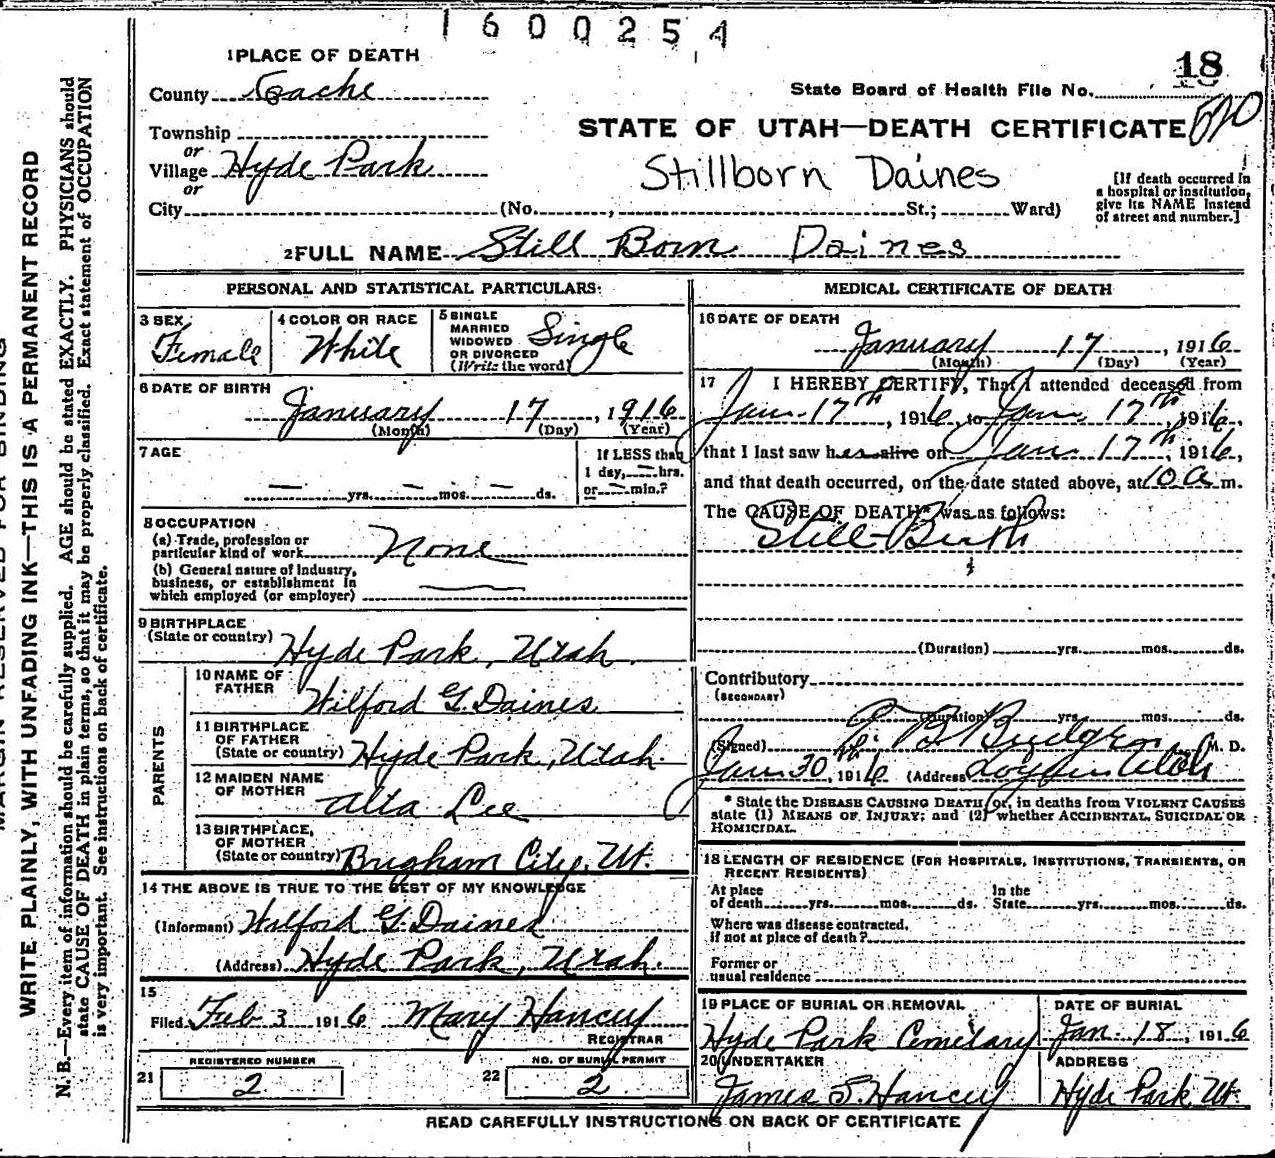 1600254
18
State Board of Health File No.
520
1 PLACE OF DEATH
County Cache
STATE OF UTAH—DEATH CERTIFICATE
Township
or
Village Hyde Park
or
Stillborn Daines
City (No. , St.; Ward)
[If death occurred in
a hospital or institution,
give its NAME instead
of street and number.]
2 FULL NAME Still Born Daines
PERSONAL AND STATISTICAL PARTICULARS:
3 SEX
Female
4 COLOR OR RACE
White
5 SINGLE
MARRIED
WIDOWED
OR DIVORCED
(Write the word)
Single
6 DATE OF BIRTH
January 17, 1916
(Month) (Day) (Year)
7 AGE
— yrs. — mos. — ds.
If LESS than
1 day, — hrs.
or — min.?
8 OCCUPATION
(a) Trade, profession or
particular kind of work None
(b) General nature of industry,
business, or establishment in
which employed (or employer)
9 BIRTHPLACE
(State or country) Hyde Park, Utah.
PARENTS
10 NAME OF
FATHER
Wilford G. Daines
11 BIRTHPLACE
OF FATHER
(State or country) Hyde Park, Utah.
12 MAIDEN NAME
OF MOTHER
Alta Lee
13 BIRTHPLACE,
OF MOTHER
(State or country) Brigham City, Ut.
14 THE ABOVE IS TRUE TO THE BEST OF MY KNOWLEDGE
(Informant) Wilford G. Daines
(Address) Hyde Park, Utah.
15
Filed Feb 3 1916 Mary Hancey
REGISTRAR
REGISTERED NUMBER
21 2
NO. OF BURIAL PERMIT
22 2
MEDICAL CERTIFICATE OF DEATH
16 DATE OF DEATH
January 17, 1916
(Month) (Day) (Year)
17 I HEREBY CERTIFY, That I attended deceased from
Jan. 17th, 1916, to Jan. 17th, 1916,
that I last saw her alive on Jan. 17th, 1916,
and that death occurred, on the date stated above, at 10 a m.
The CAUSE OF DEATH* was as follows:
Still-Birth
(Duration) yrs. mos. ds.
Contributory
(SECONDARY)
(Duration) yrs. mos. ds.
(Signed) B Budge M. D.
Jan 30th, 1916 (Address) Logan Utah
* State the DISEASE CAUSING DEATH, or, in deaths from VIOLENT CAUSES
state (1) MEANS OF INJURY; and (2) whether ACCIDENTAL, SUICIDAL OR
HOMICIDAL.
18 LENGTH OF RESIDENCE (FOR HOSPITALS, INSTITUTIONS, TRANSIENTS, OR
RECENT RESIDENTS)
At place
of death yrs. mos. ds.
In the
State yrs. mos. ds.
Where was disease contracted,
if not at place of death?
Former or
usual residence
19 PLACE OF BURIAL OR REMOVAL
Hyde Park Cemitary
DATE OF BURIAL
Jan. 18, 1916
20 UNDERTAKER
James S. Hancey
ADDRESS
Hyde Park Ut.
READ CAREFULLY INSTRUCTIONS ON BACK OF CERTIFICATE
MARGIN RESERVED FOR BINDING
WRITE PLAINLY, WITH UNFADING INK—THIS IS A PERMANENT RECORD
N. B.—Every item of information should be carefully supplied. AGE should be stated EXACTLY. PHYSICIANS should
state CAUSE OF DEATH in plain terms, so that it may be properly classified. Exact statement of OCCUPATION
is very important. See instructions on back of certificate.